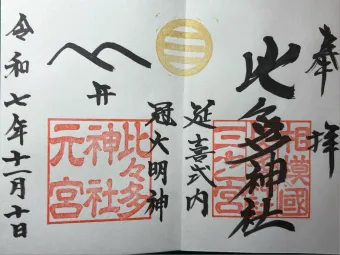 奉拝
相模國三之宮
比々多神社
延喜式内
冠大明神
比々多神社
元宮
令和七年十一月十日